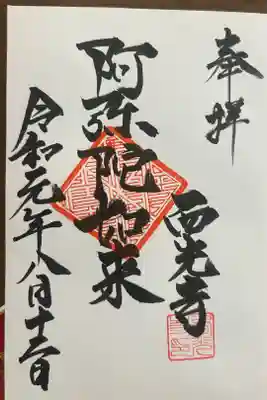 奉拝
西光寺
阿弥陀如来
令和元年八月十三日